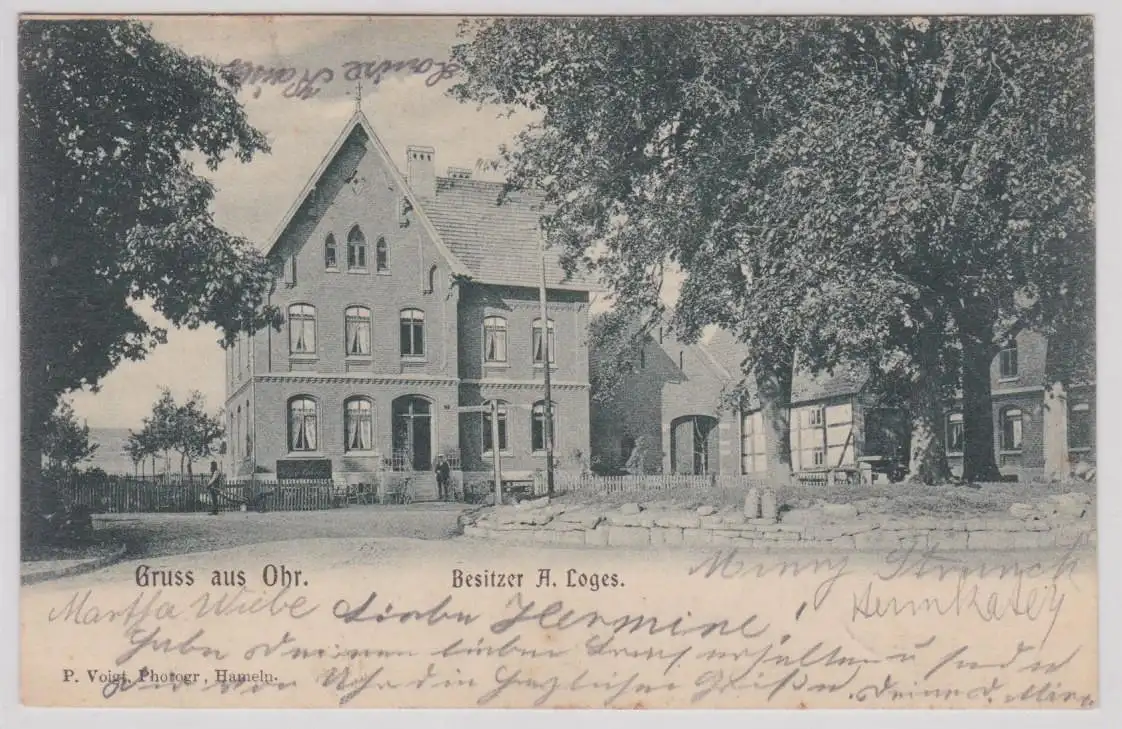 Gruss aus Ohr.
Besitzer A. Loges.
Minny Strunck
Martha Wiebe Liebe Hermine!
Habe Deinen lieben Brief erhalten u sende
Dir von Ohr die herzlichsten Grüße. Deine
P. Voigt, Photogr, Hameln.